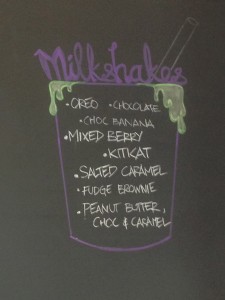 Milkshakes
• OREO • CHOCOLATE
• CHOC BANANA
• MIXED BERRY
• KITKAT
• SALTED CARAMEL
• FUDGE BROWNIE
• PEANUT BUTTER,
CHOC & CARAMEL